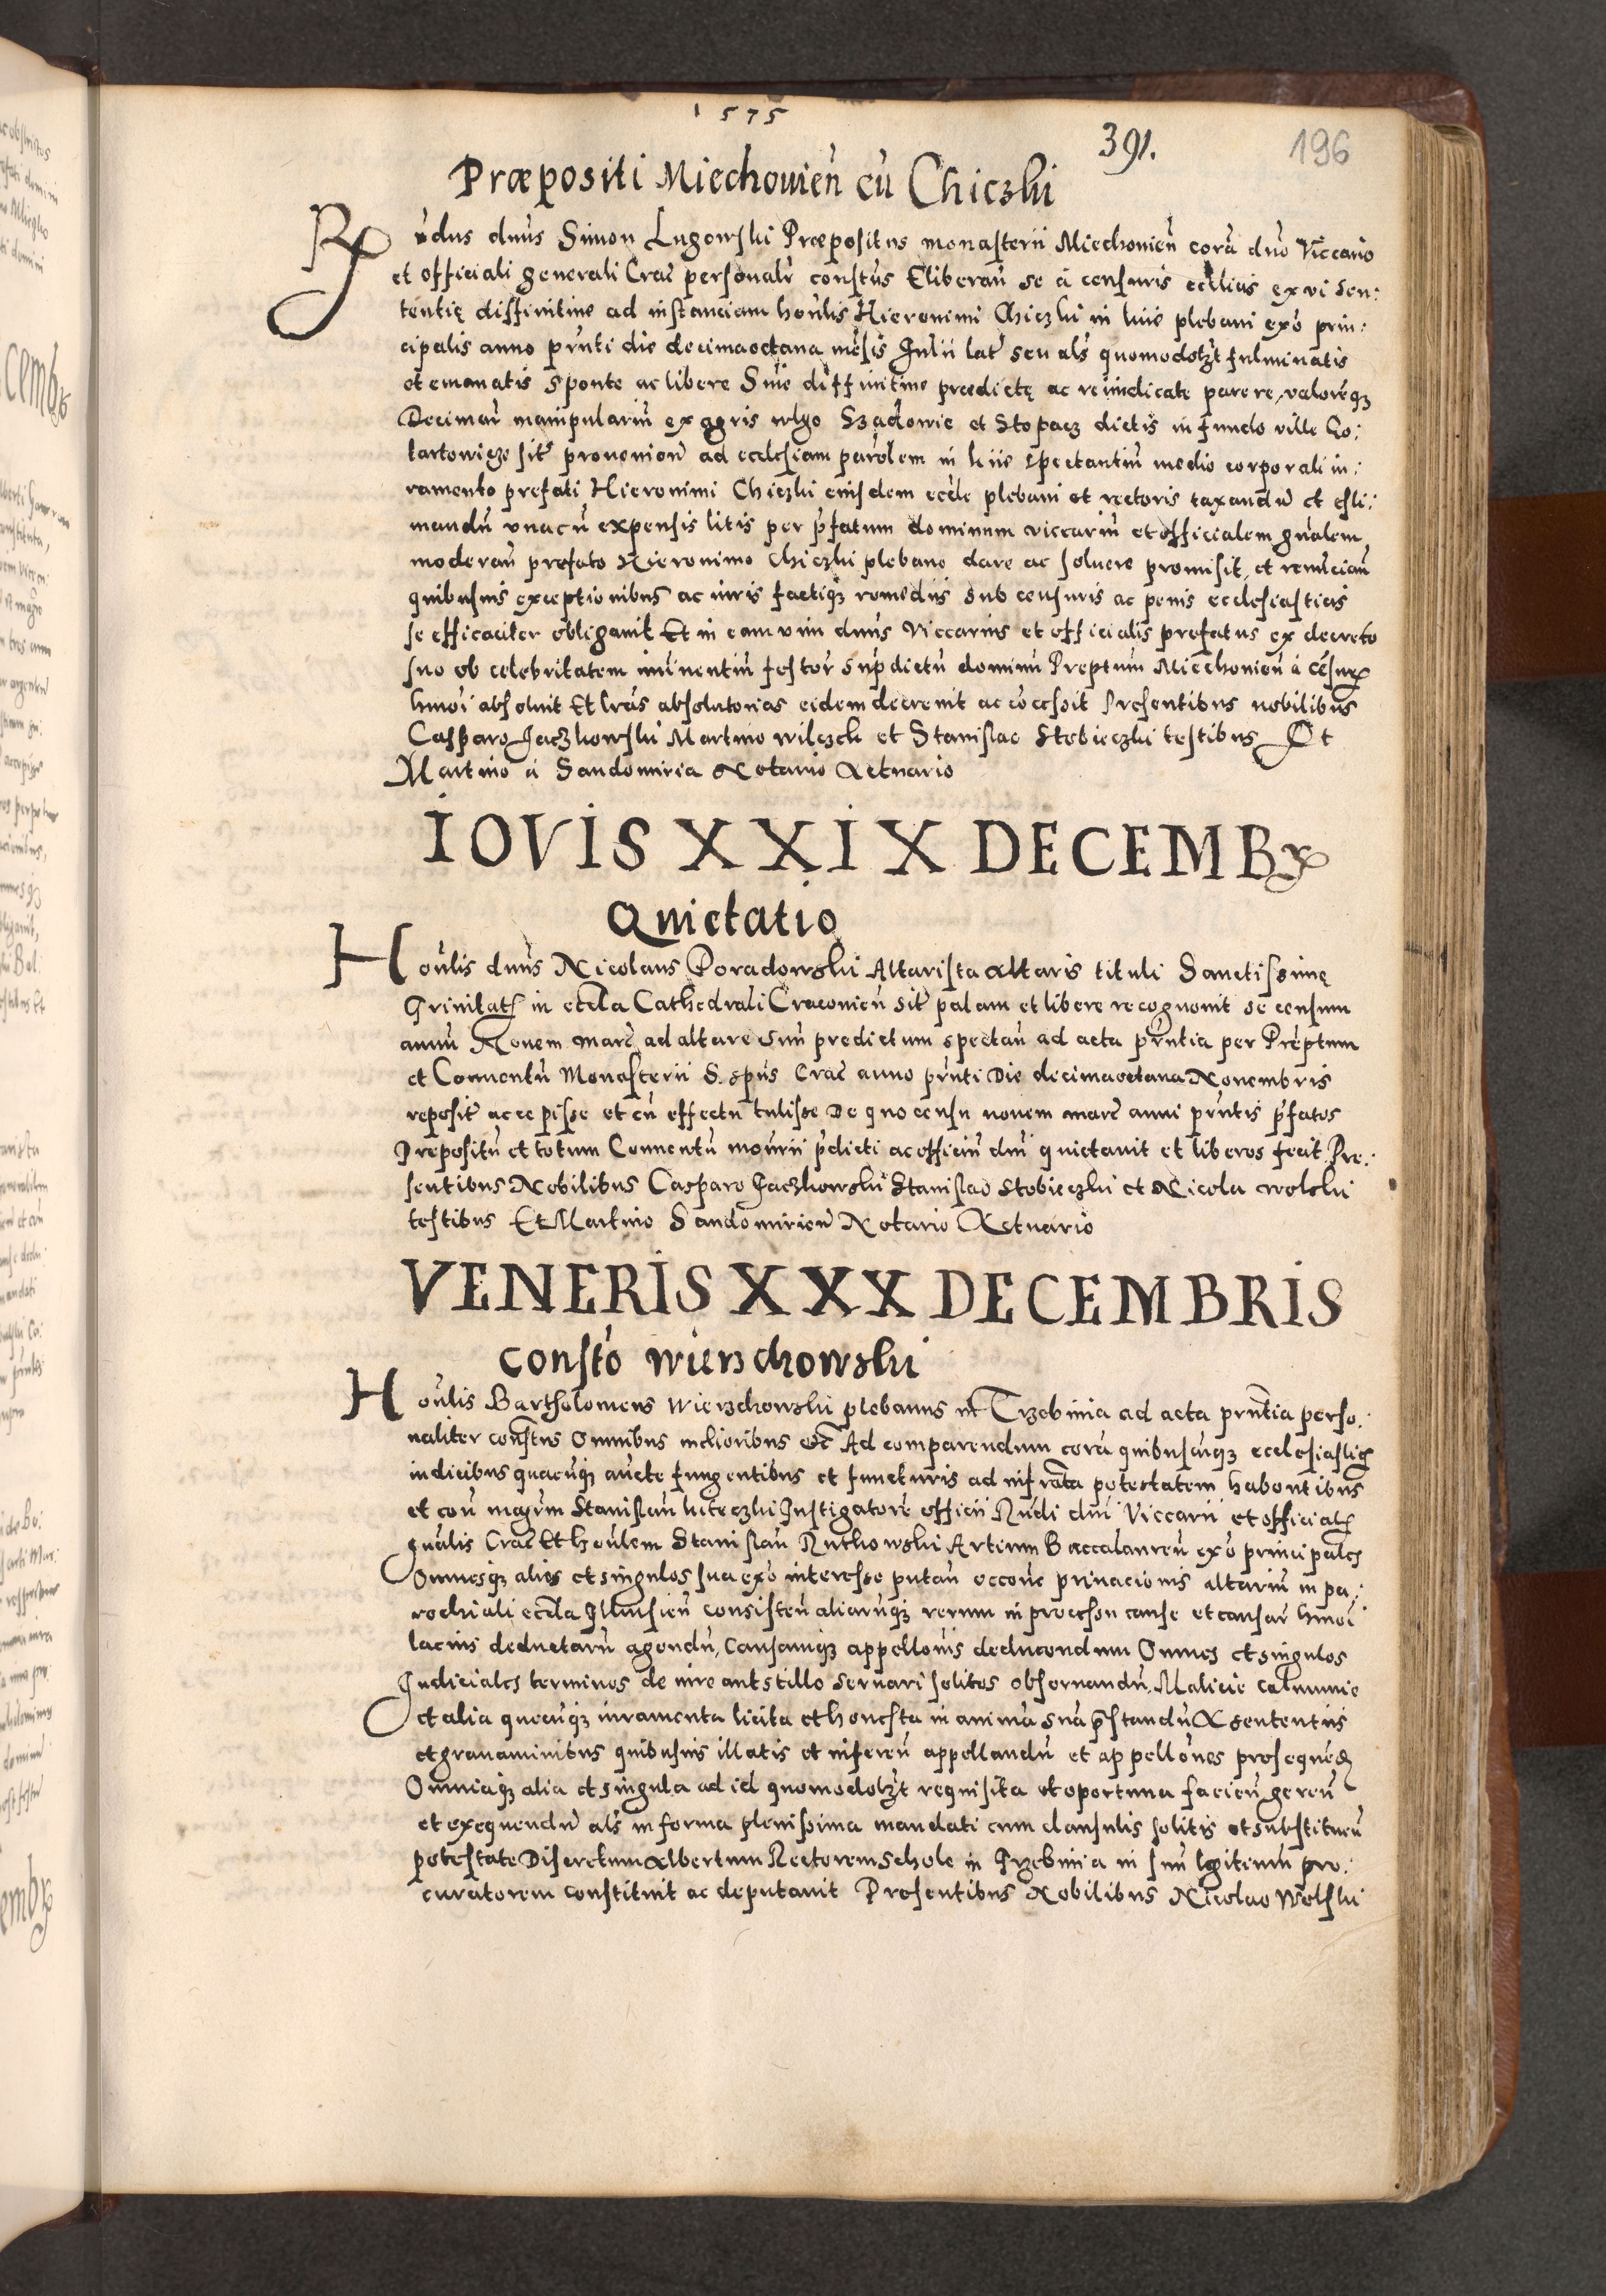 1575
391.
196
Præpositi Miechouien̄ cū Chiczki
Rn̄dus dnūs Simon Lugowski Præpositus monasterii Miechouien̄ corā dn̄o Viccario
et officiali generali Crac̄ personalr̄ constūs Eliberan̄ se á censuris ecclīcis ex vi Sen:
tentię diffinitiue ad instanciam honl̄is Hieronimi Chiczki in plebani exo prin:
cipalis anno prn̄ti die decimaoctaua mēsis Julii lat̄ seu als̄ quomodolꝫt fulminatis
et emanatis sponte ac libere Snīe diffinitiue prædictę ac reiudicate parere, valoremqꝫ
Decimar̄ manipulariū ex agris wlgo Szadowie et Stopacz dictis in fundo ville Go:
lartowicze sit̄ prouenien̄ ad ecclesiam parolem in spectantiū medio corporali iu:
ramento prefati Hieronimi Chiczki eiusdem eccl̄e plebani et rectoris taxandū et esti:
mandū vnacū expensis litis per p̄fatum dominum viccariū et officialem gn̄alem
moderan̄ prefato Hieronimo Chiczki plebano dare ac soluere promisit, et renūcian̄
quibusuis exceptionibus ac iuris factiqꝫ remediis sub censuris ac penis ecclesiasticis
se efficaciter obligauit Et in eam vim dnūs Viccarius et officialis prefatus ex decreto
suo ob celebritatem iminentiū festor̄ sup̄dictū dominū Preptum Miechouien̄ á cēsuris
hmōi absoluit Et lrās absolutorias eidem decreuit ac cōcessit Presentibus nobilibus
Casparo Jaczkowski Martino wilczek et Stanislao Stobieczki testibus Et
Martino á Sandomiria Notario Actuario
IOVIS XXIX DECEMBR
Quietatio
Honl̄is dnūs Nicolaus Poradowski Altarista altaris tituli Sanctissimę
Trinitatis in eccl̄a Cathedrali Cracouien̄ sit̄ palam et libere recognouit se censum
annū Nouem marc̄ ad altare suū predictum spectan̄ ad acta prn̄tia per Preptum
et Conuentū Monasterii S. spūs Crac̄ anno prn̄ti Die decimaoctaua Nouembris
reposit̄ accepisse et cū effectu tulisse De quo censu nouem marc̄ anni prn̄tis p̄fatos
Prepositū et totum Conuentū monrii p̄dicti ac officiū dn̄i quietauit et liberos fecit Pre:
sentibus Nobilibus Casparo Jaczkowski Stanislao Stobieczki et Nicolu wolski
testibus Et Martino Sandomirien̄ Notario Actuario
VENERIS XXX DECEMBRIS
Constō Wierzchowski
Honl̄is Bartholomeus Wierzchowski plebanus in Trzebinia ad acta prn̄tia perso:
naliter constūs Omnibus melioribus etc̄ Ad comparendum corā quibuscūqꝫ ecclesiastics
iudicibus quacūqꝫ aucte fungentibus et functuris ad infrāta potestatem habentibus
et con̄ magrm̄ Stanislaū Instigatorē officii Rn̄di dn̄i Viccarii et officialis
gnālis Crac̄ Et honl̄em Stanislaū Rutkowski Artium Baccalaureū exo principales
Omnesqꝫ alios et singulos sua exo interesse putan̄ occone priuacionis altariū in pa:
rochiali eccl̄a Ilkusien̄ consisten̄ aliarūqꝫ rerum in processu cause et causar̄ hmōi
lacius deductarū agendū, Causamqꝫ appellonis deducendum Omnes et singulos
Iudiciales terminos de iure aut stillo seruari solitos obseruandū. Malicie calumnie
et alia quecūqꝫ iuramenta licita et honesta in animā suā p̄standū A sententiis
et grauaminibus quibusuis illatis et inferen̄ appellandū et appellones prosequen̄d
Omniaqꝫ alia et singula ad id quomodolꝫt requisita et oportuna facien̄ geren̄
et exequendū als̄ in forma plenissima mandati cum clausulis solitis et substituen̄
potestate Discretum Albertum Rectorem Schole in Trzebinia in suū lgitimū pro:
curatorem constituit ac deputauit Presentibus Nobilibus Nicolao Wolski